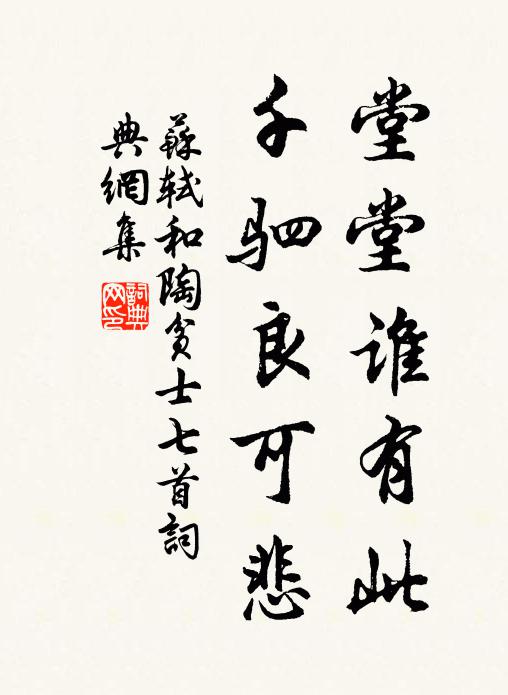 堂堂谁有此
千驷良可悲
蘇軾和陶貧士七首詞
典網集
詞典
网印